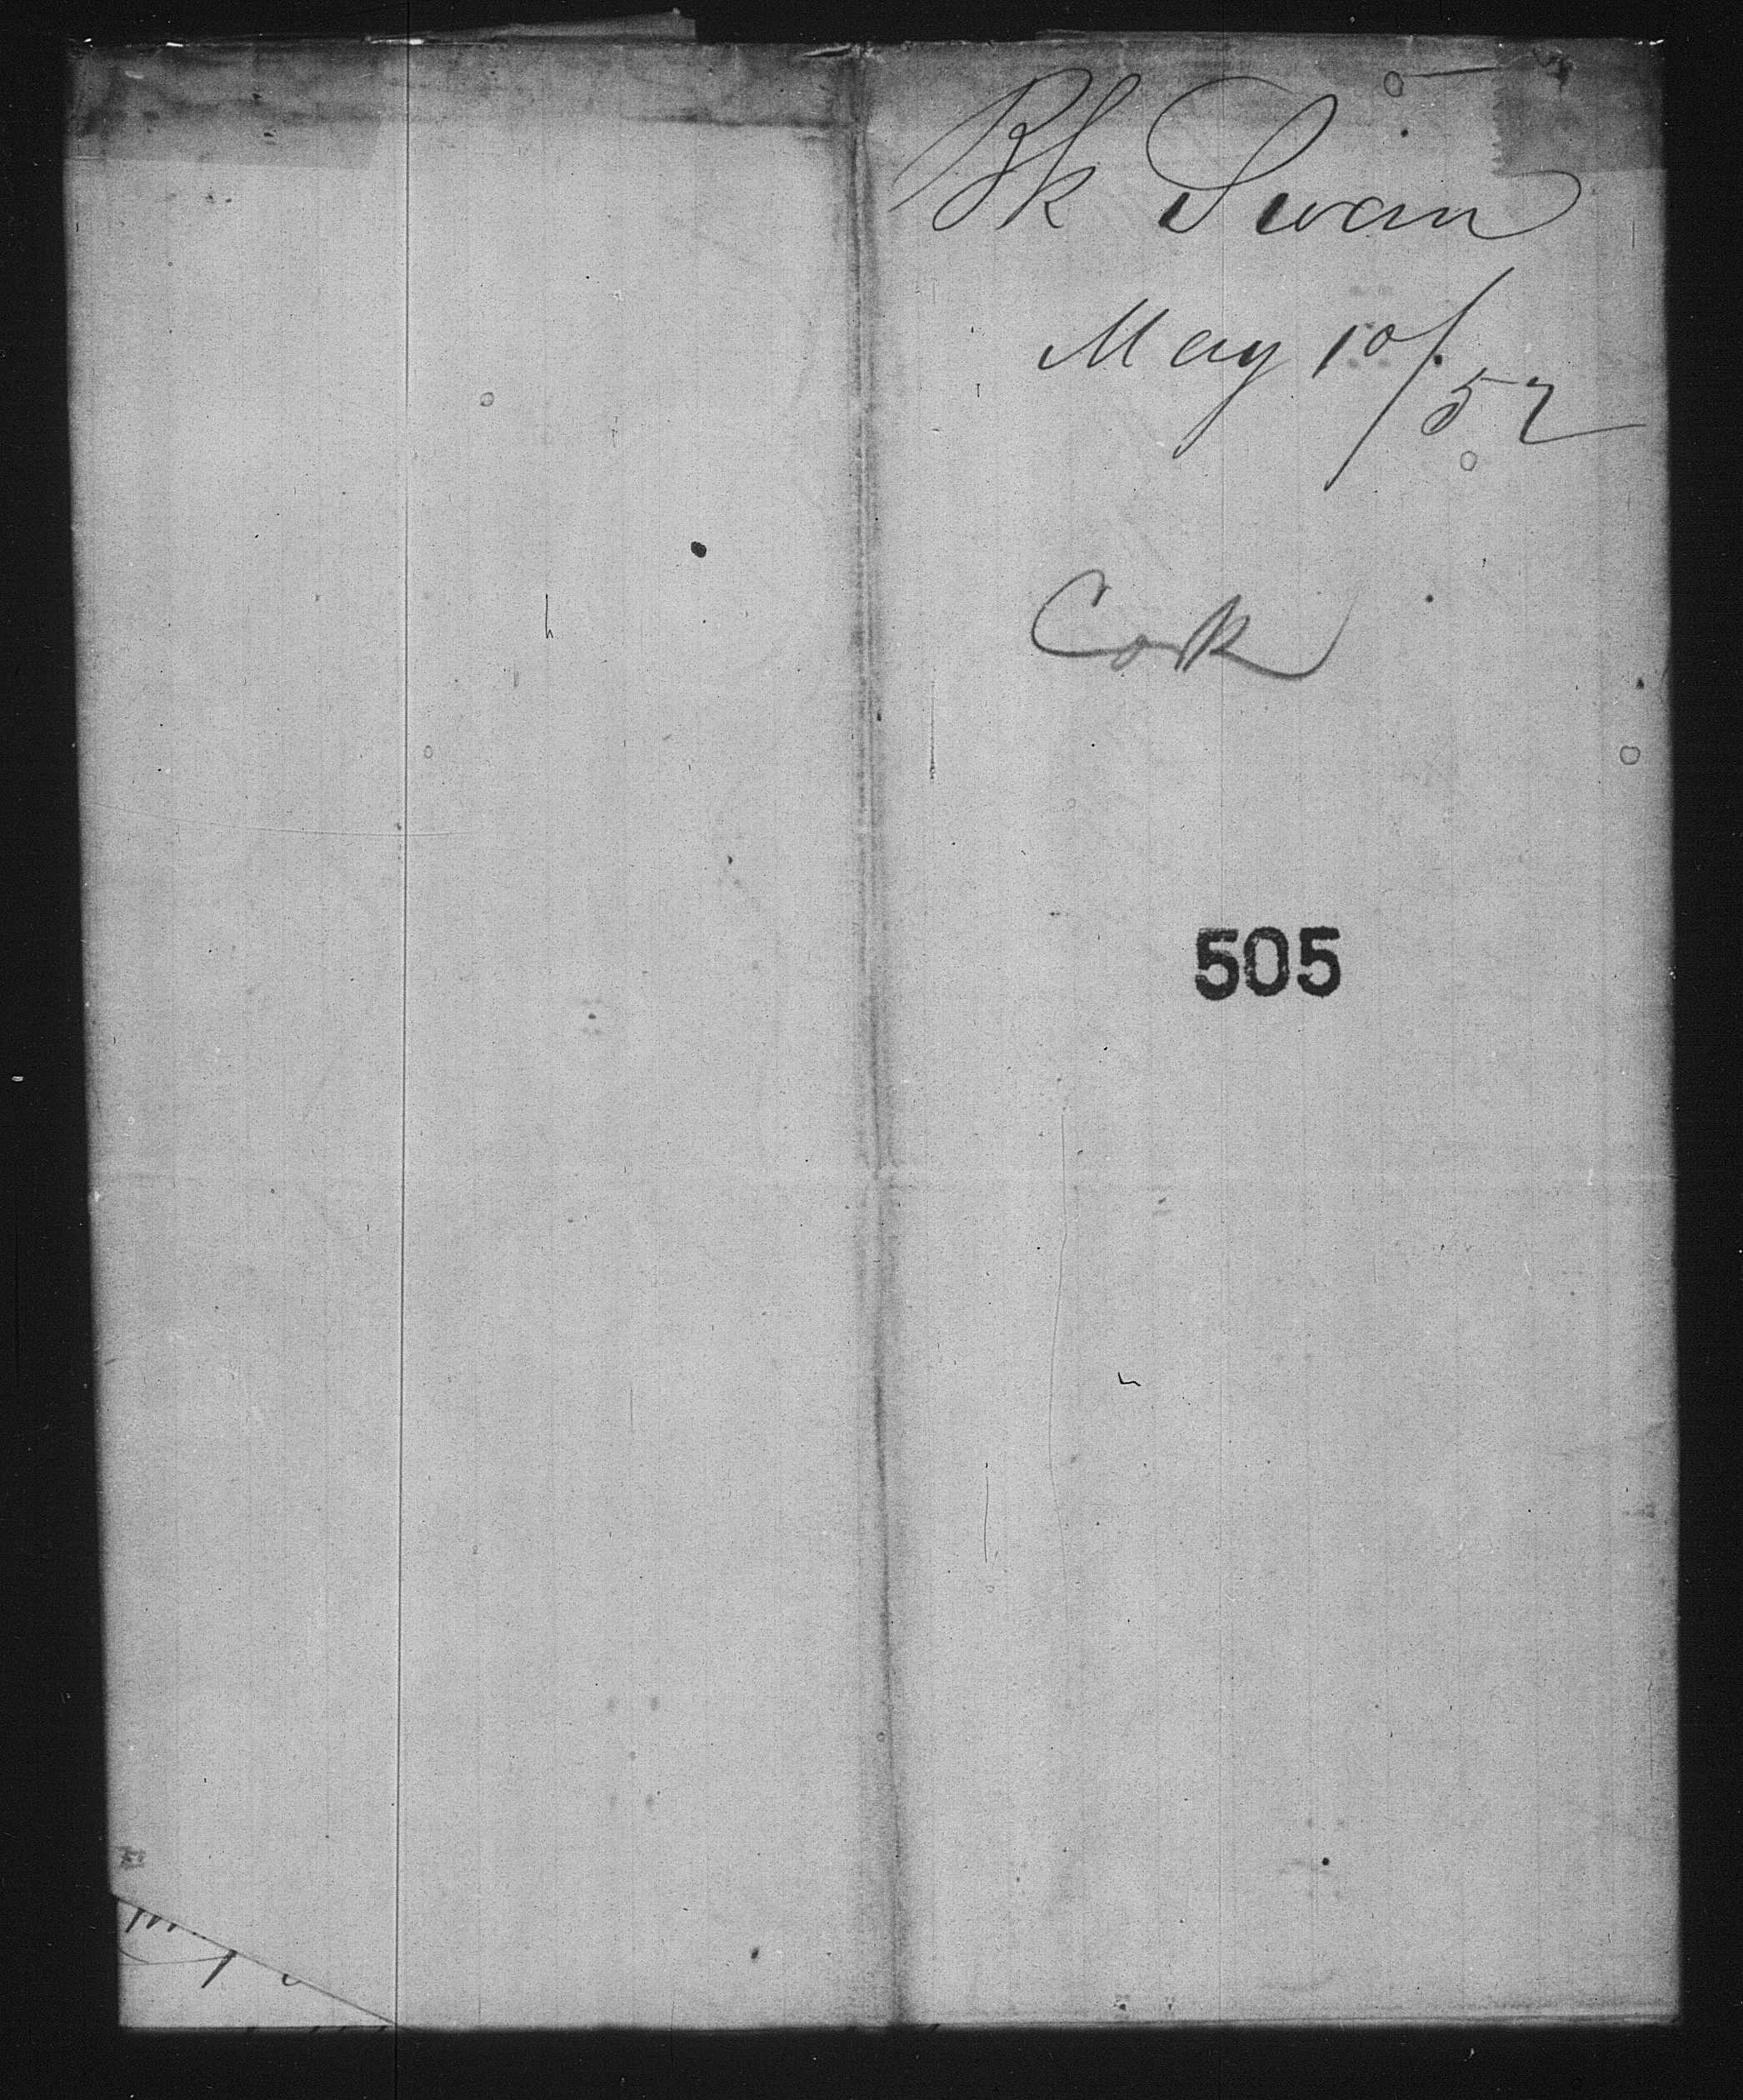 Bk Swan
May 10/52
Cork
505